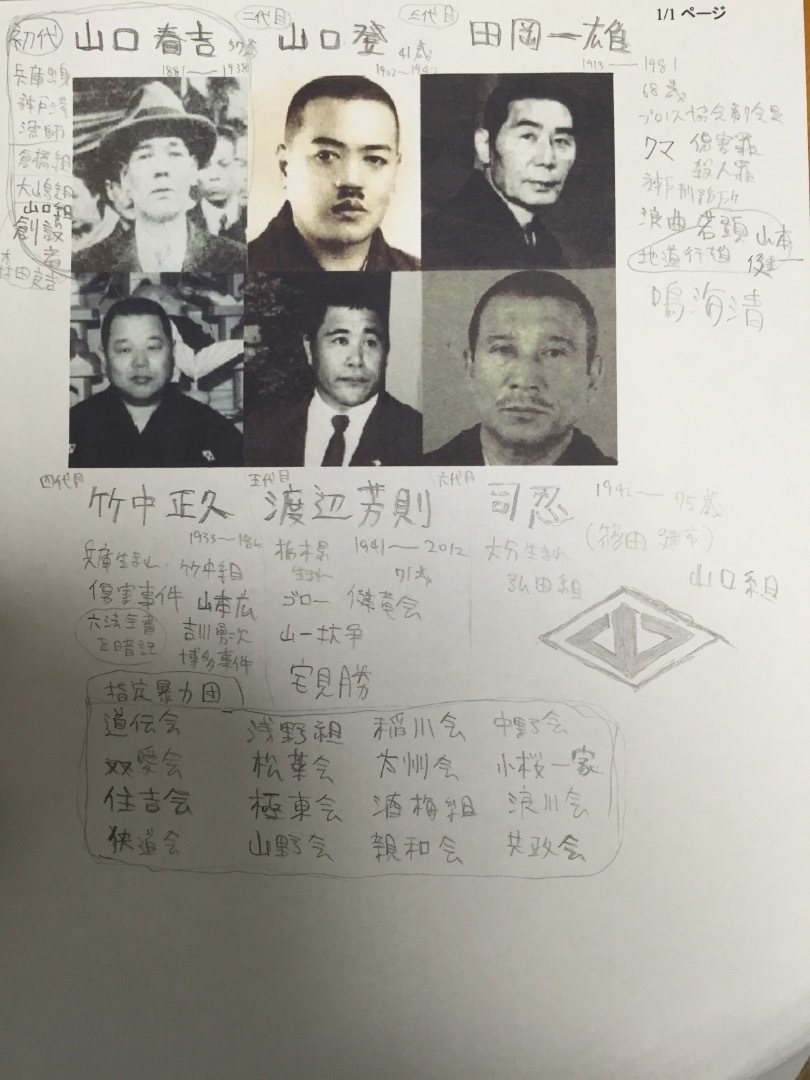 1/1 ページ
初代 山口春吉 57歳
1881〜1938
二代目
山口登 41歳
1902〜1942
三代目
田岡一雄
1913〜1981
68歳
兵庫出身
神戸港
漁師
倉橋組
大嶋組
山口組
創設者
プロレス協会副会長
クマ 傷害罪
殺人罪
神戸刑務所
浪曲 若頭 山本健一
地道行雄
鳴海清
四代目
竹中正久
1933〜1984
兵庫生まれ 竹中組
傷害事件 山本広
六法全書 吉川勇次
を暗記 博多事件
五代目
渡辺芳則
栃木県 1941〜2012
生まれ 71歳
ゴロー 健竜会
山一抗争
宅見勝
六代目
司忍
1942〜 75歳
(篠田建市)
大分生まれ
弘田組
山口組
指定暴力団
道仁会 浅野組 稲川会 中野会
双愛会 松葉会 九州会 小桜一家
住吉会 極東会 酒梅組 浪川会
侠道会 山野会 親和会 共政会